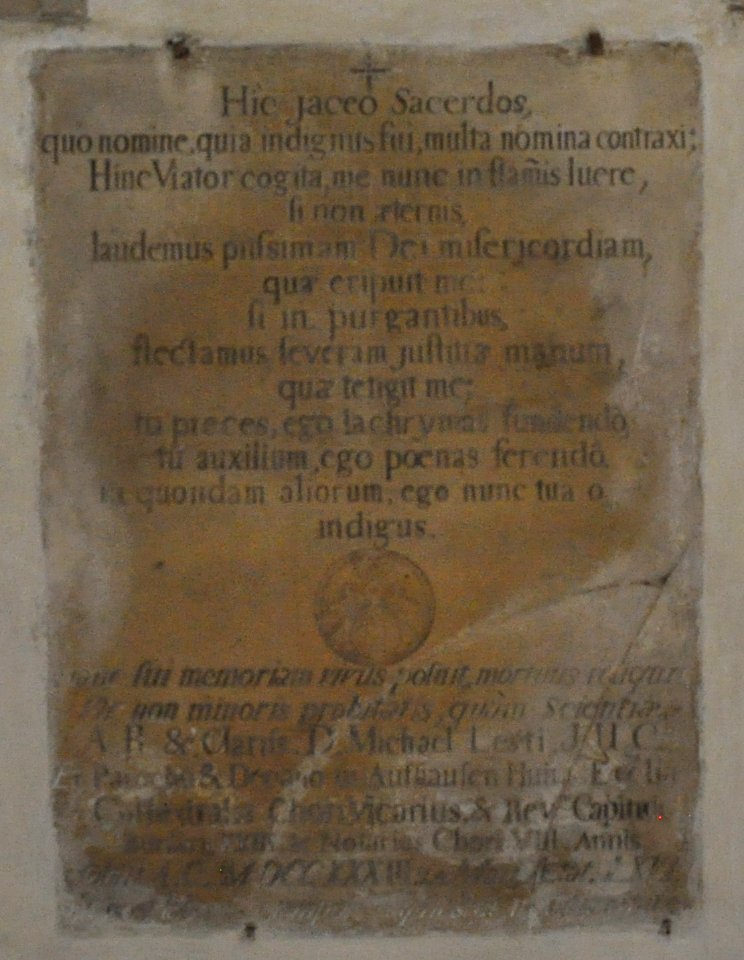 Hic jaceo Sacerdos,
quo nomine, quia indignus fui, multa nomina contraxi;
Hinc Viator cogita, me nunc in flam̃is luere,
si non æternis,
laudemus piissimam Dei misericordiam,
quæ eripuit me:
si in purgantibus,
flectamus severam justitiæ manum,
quæ tetigit me;
tu preces, ego lachrymas fundendo,
tu auxilium, ego pœnas ferendo.
quondam aliorum, ego nunc tua o.
indigus.
sui memoriam vivus posuit, mortuus
non minoris probitatis, quàm Scientiæ
A. R. & Clariss. D. Michael
Parochus & in Aufhausen Hujus
Chori Vicarius, & Rev. Capituli
Notarius Chori VIII. Annis
A. C. MDCCXXXIII